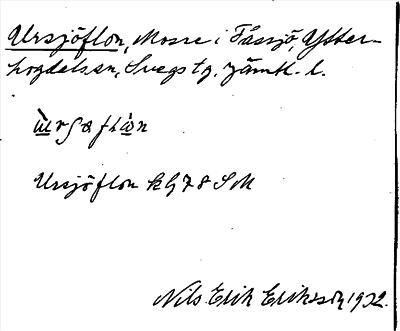 Ursjöflon, Mosse i Fåssjö, Ytter-
hogdals sn, Svegs tg, Jämtl. l.
Ursjöflon kg 78 SM
Nils Erik Eriksson 1932.